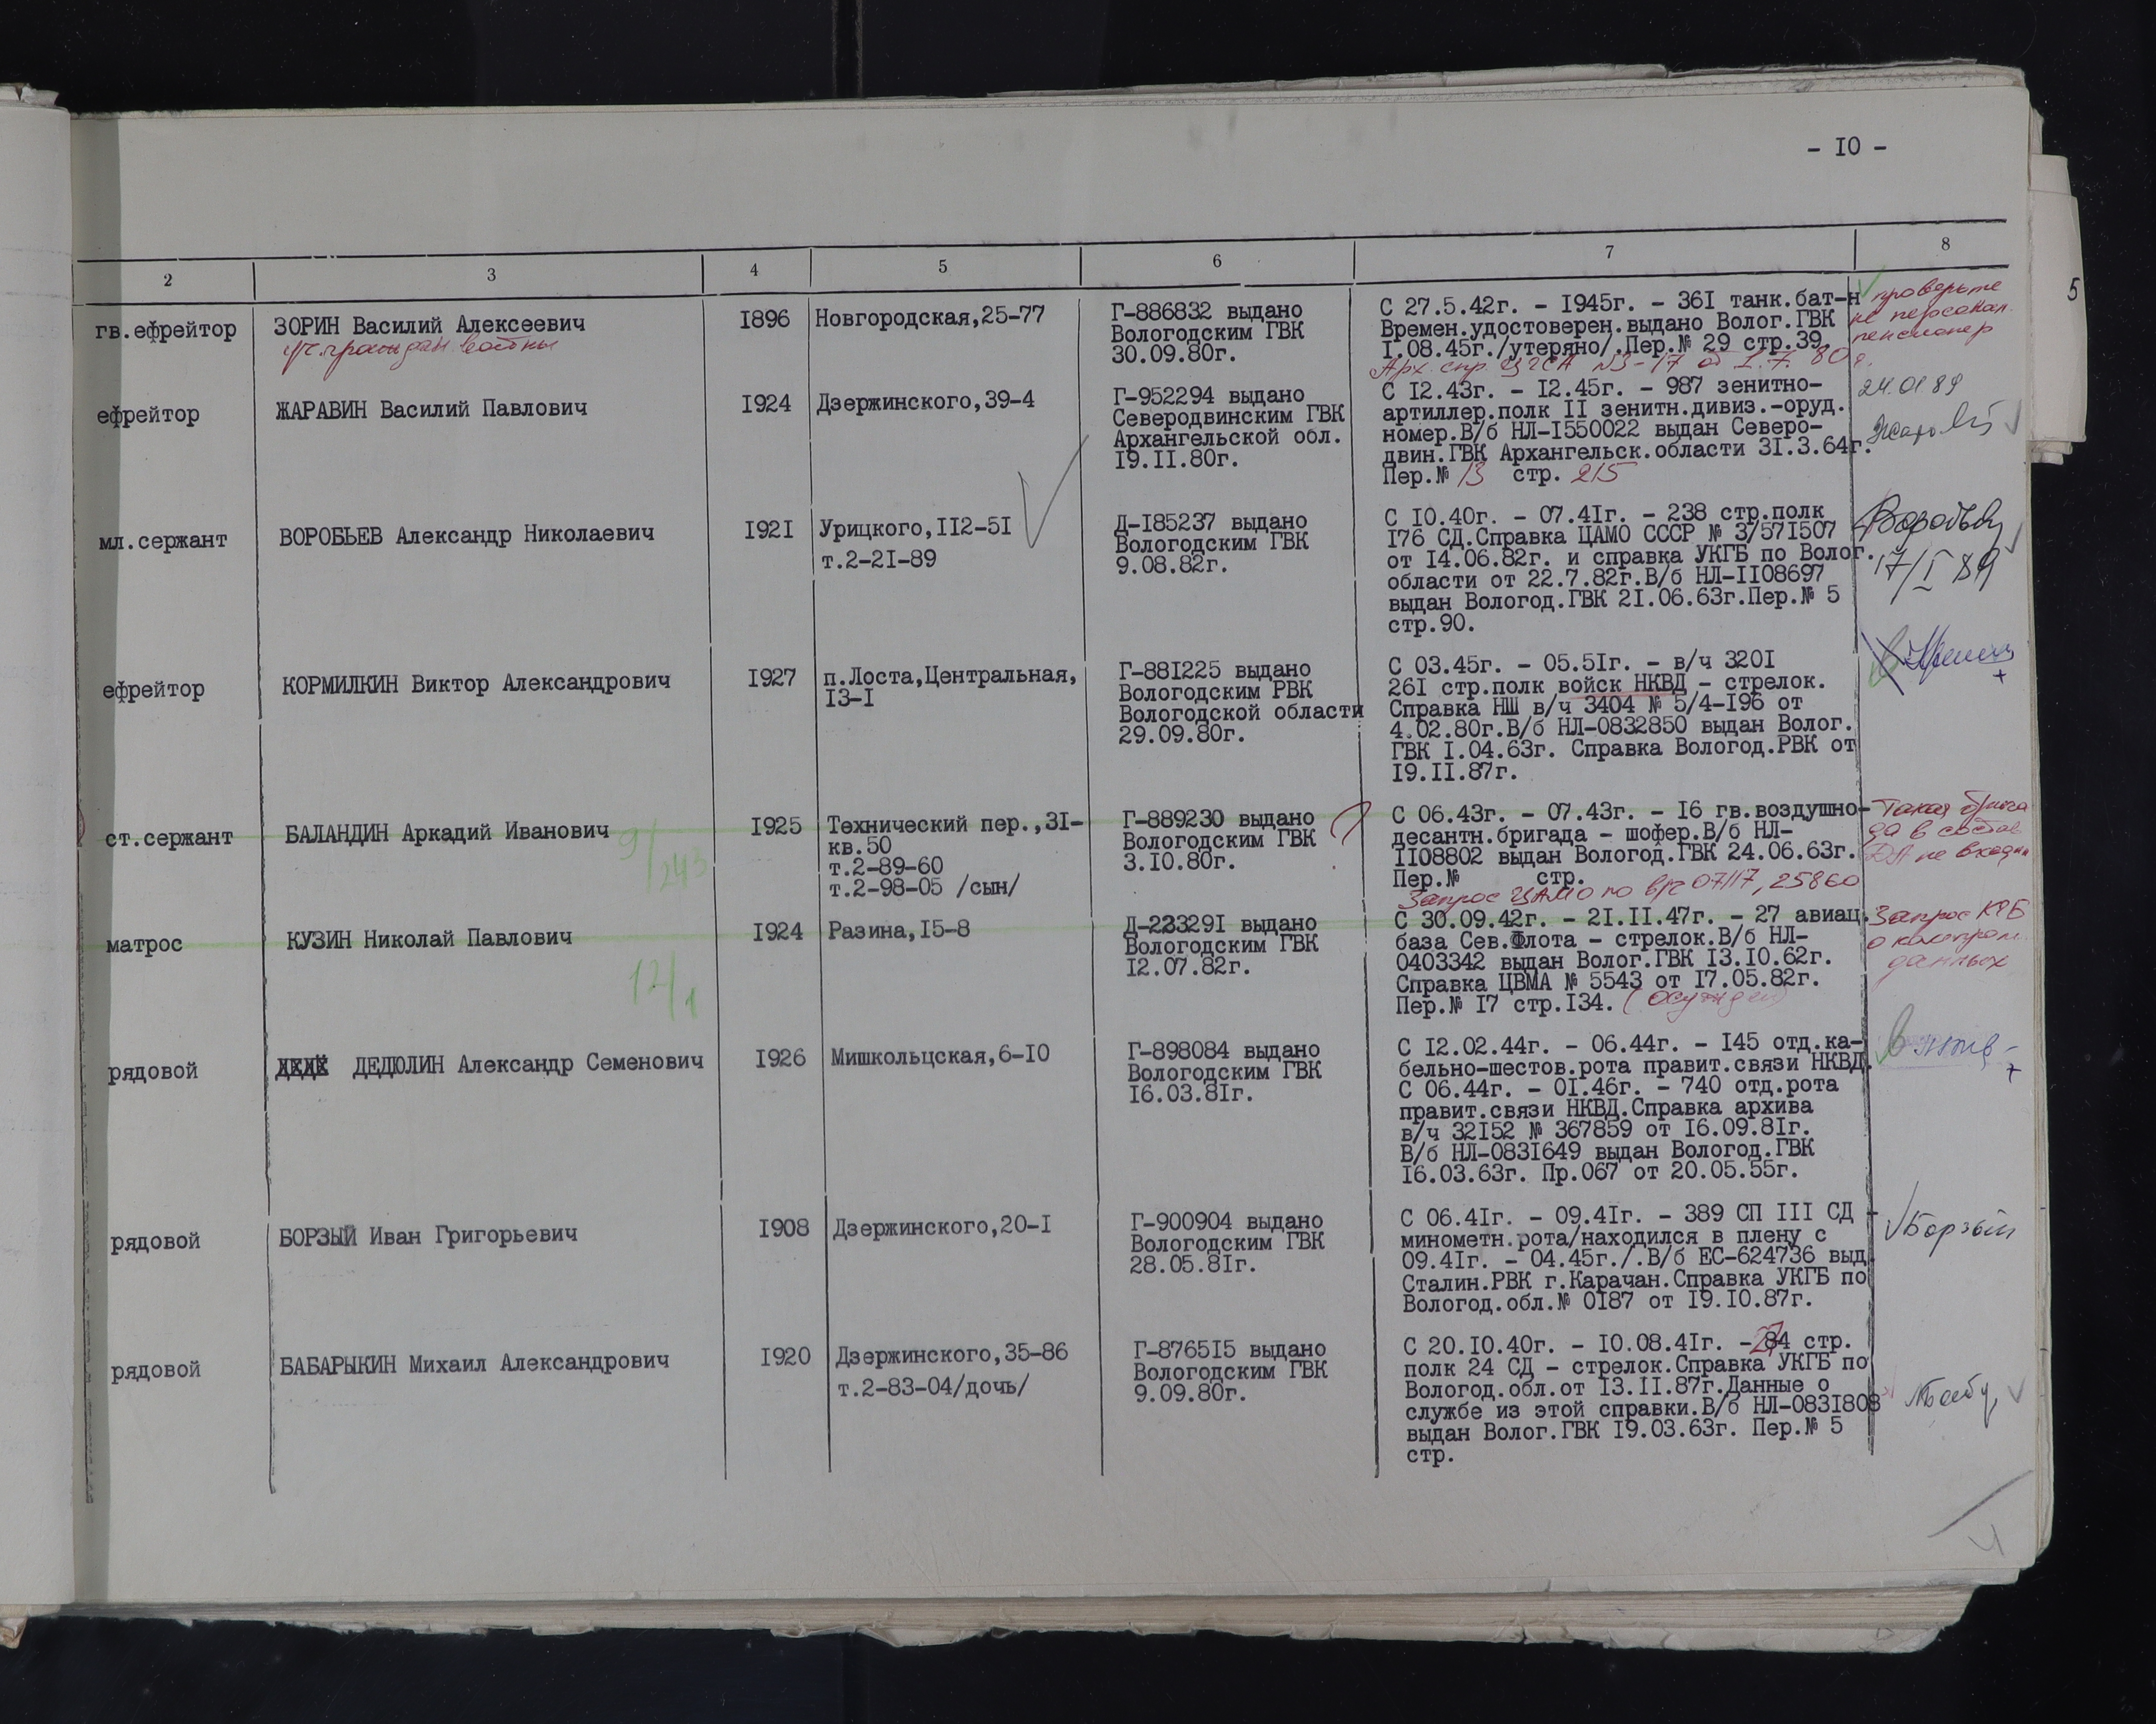 - 10 -
2 3 4 5 6 7 8
5
гв.ефрейтор
ЗОРИН Василий Алексеевич
уч.граждан.войны
1896
Новгородская,25-77
Г-886832 выдано
Вологодским ГВК
30.09.80г.
С 27.5.42г. - 1945г. - 361 танк.бат-н
Времен.удостоверен.выдано Волог.ГВК
1.08.45г./утеряно/.Пер.№ 29 стр.39.
Арх. спр. ЦГСА №3-17 от 1.7.80г.
проверьте
не персонал.
пенсионер
ефрейтор
ЖАРАВИН Василий Павлович
1924
Дзержинского,39-4
Г-952294 выдано
Северодвинским ГВК
Архангельской обл.
19.11.80г.
С 12.43г. - 12.45г. - 987 зенитно-
артиллер.полк 11 зенитн.дивиз.-оруд.
номер.В/б НЛ-1550022 выдан Северо-
двин.ГВК Архангельск.области 31.3.64г.
Пер.№ 13 стр. 215
24.01.89
мл.сержант
ВОРОБЬЕВ Александр Николаевич
1921
Урицкого,112-51
т.2-21-89
Д-185237 выдано
Вологодским ГВК
9.08.82г.
С 10.40г. - 07.41г. - 238 стр.полк
176 СД.Справка ЦАМО СССР № 3/571507
от 14.06.82г. и справка УКГБ по Волог.
области от 22.7.82г.В/б НЛ-1108697
выдан Вологод.ГВК 21.06.63г.Пер.№ 5
стр.90.
17/I 89
ефрейтор
КОРМИЛКИН Виктор Александрович
1927
п.Лоста,Центральная,
13-1
Г-881225 выдано
Вологодским РВК
Вологодской области
29.09.80г.
С 03.45г. - 05.51г. - в/ч 3201
261 стр.полк войск НКВД - стрелок.
Справка НШ в/ч 3404 № 5/4-196 от
4.02.80г.В/б НЛ-0832850 выдан Волог.
ГВК 1.04.63г. Справка Вологод.РВК от
19.11.87г.
ст.сержант
БАЛАНДИН Аркадий Иванович
9/243
1925
Технический пер.,31-
кв.50
т.2-89-60
т.2-98-05 /сын/
Г-889230 выдано
Вологодским ГВК
3.10.80г.
С 06.43г. - 07.43г. - 16 гв.воздушно-
десантн.бригада - шофер.В/б НЛ-
1108802 выдан Вологод.ГВК 24.06.63г.
Пер.№ стр.
Запрос ЦАМО по в/ч 07117, 25860
Такая брига
да в состав
ДА не входи
матрос
КУЗИН Николай Павлович
12/1
1924
Разина,15-8
Д-223291 выдано
Вологодским ГВК
12.07.82г.
С 30.09.42г. - 21.11.47г. - 27 авиац.
база Сев.Флота - стрелок.В/б НЛ-
0403342 выдан Волог.ГВК 13.10.62г.
Справка ЦВМА № 5543 от 17.05.82г.
Пер.№ 17 стр.134. (осужден)
Запрос КГБ
о компром.
данных
рядовой
ДЕДЮЛИН Александр Семенович
1926
Мишкольцская,6-10
Г-898084 выдано
Вологодским ГВК
16.03.81г.
С 12.02.44г. - 06.44г. - 145 отд.ка-
бельно-шестов.рота правит.связи НКВД.
С 06.44г. - 01.46г. - 740 отд.рота
правит.связи НКВД.Справка архива
в/ч 32152 № 367859 от 16.09.81г.
В/б НЛ-0831649 выдан Вологод.ГВК
16.03.63г. Пр.067 от 20.05.55г.
рядовой
БОРЗЫЙ Иван Григорьевич
1908
Дзержинского,20-1
Г-900904 выдано
Вологодским ГВК
28.05.81г.
С 06.41г. - 09.41г. - 389 СП 111 СД -
минометн.рота/находился в плену с
09.41г. - 04.45г./.В/б ЕС-624736 выд.
Сталин.РВК г.Карачан.Справка УКГБ по
Вологод.обл.№ 0187 от 19.10.87г.
Борзый
рядовой
БАБАРЫКИН Михаил Александрович
1920
Дзержинского,35-86
т.2-83-04/дочь/
Г-876515 выдано
Вологодским ГВК
9.09.80г.
С 20.10.40г. - 10.08.41г. - 84 стр.
полк 24 СД - стрелок.Справка УКГБ по
Вологод.обл.от 13.11.87г.Данные о
службе из этой справки.В/б НЛ-0831808
выдан Волог.ГВК 19.03.63г. Пер.№ 5
стр.